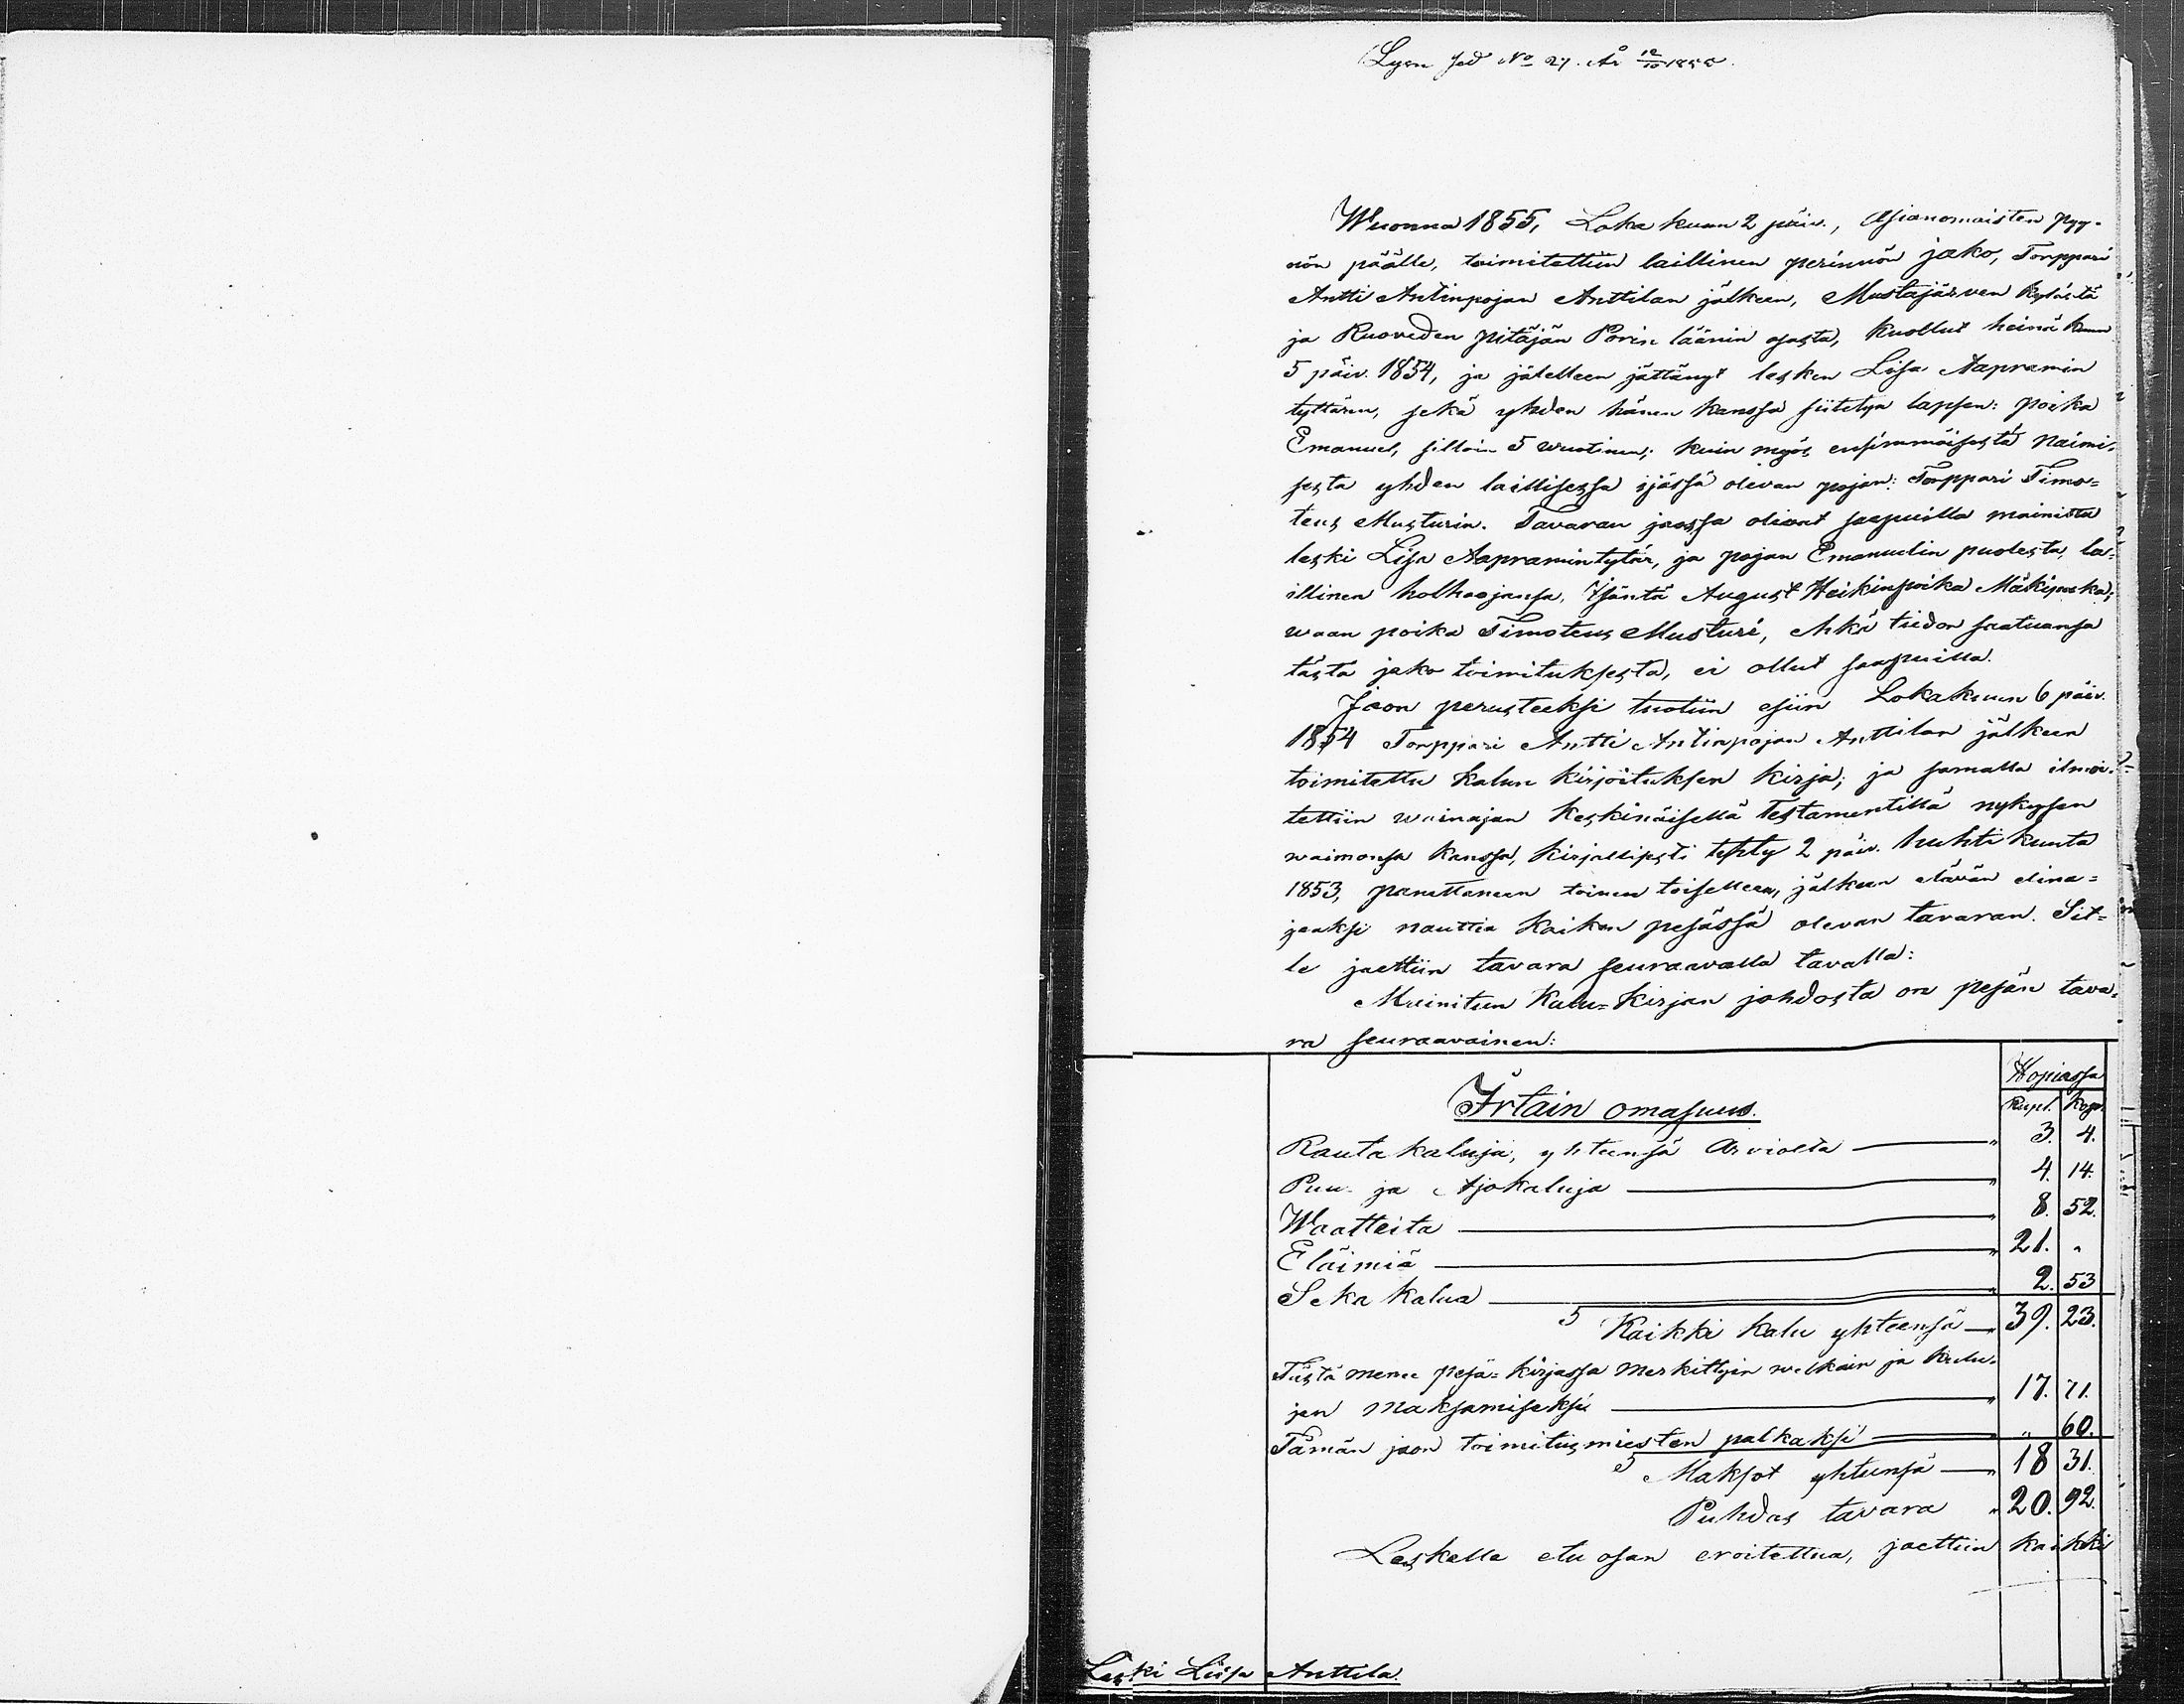 No 27. 12/10 1855.
Wuonna 1855, Loka kuun 2 päiv., Asianomaisten pyy-
nön päälle, toimitettiin laillinen perinnön jako, Torppari
Antti Antinpojan Anttilan jälkeen, Mustajärven kylästä
ja Ruoveden pitäjän Porin läänin osasta, kuollut heinä kuun
5 päiv. 1854, ja jälelleen jättänyt lesken Lisa Aapramin
tyttären, sekä yhden hänen kanssa siitetyn lapsen: poika
Emanuel, silloin 5 wuotinen; kuin myös ensimmäisestä naimi-
sesta yhden laillisessa ijässä olevan pojan: Torppari Timo=
teus Musturin. Tavaran jaossa olivat saapuilla mainittu
leski Lisa Aapramintytär, ja pojan Emanuelin puolesta, la=
illinen holhoojansa, Isäntä August Heikinpoika Mäkipoka;
waan poika Timoteus Musturi, ehkä tiedon saatuansa
tästä jako toimituksesta, ei ollut saapuilla.
Jaon perusteeksi tuotiin esiin Lokakuun 6 päiv.
1854 Torppari Antti Antinpojan Anttilan jälkeen
toimitettu kalun kirjoituksen kirja; ja samalla ilmoi-
tettiin wainajan keskinäisellä Testamentillä nykysen
waimonsa kanssa, kirjallisesti tehty 2 päiv. huhti kuuta
1853, panettaneen toinen toisellean, jälkeen elävän elina=
jaaksi nauttia kaiken pesässä olevan tavaran. Sit=
le jaettiin tavara seuraavalla tavalla:
Mainitun Kalu=kirjan johdosta on pesän tava-
ra seuraavainen:
Hopiassa
Irtain omasuus. Rupl. Kop.
Rauta kaluja, yhteensä Arviolta " 3. 4.
Puu- ja Ajokaluja " 4. 14.
Waatteita " 8. 52.
Eläimiä " 21. "
Seka kalua " 2. 53
Kaikki kalu yhteensä " 39. 23.
Tästä menee pesä=kirjassa merkittyin welkain ja kulu-
jen maksamiseksi " 17. 71.
Tämän jaon toimitusmiesten palkaksi " " 60.
Maksot yhteensä " 18 31.
Puhdas tavara " 20. 92.
Leskelle etu osan eroitettua, jaettiin kaikki
Leski Liisa Anttila.